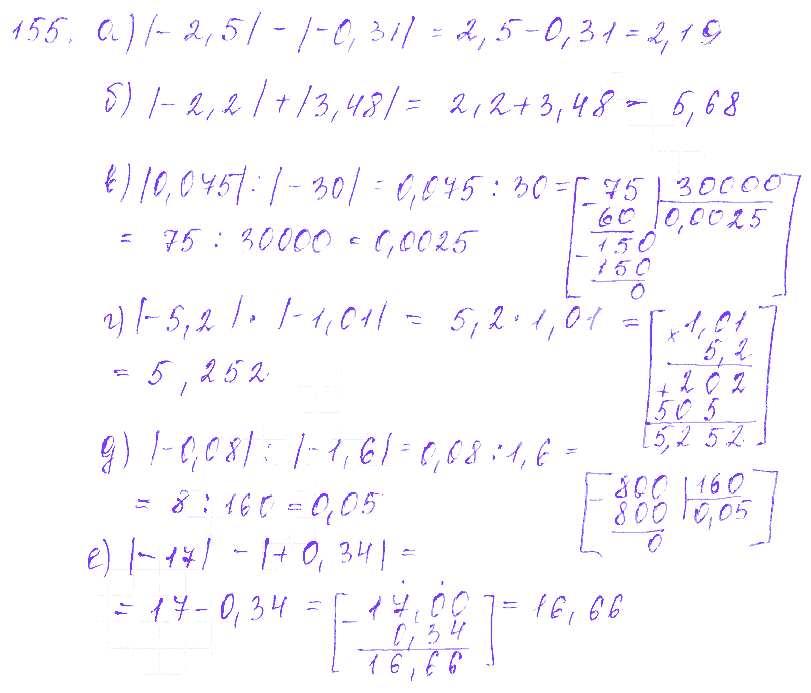 155. а) |-2,5| - |-0,31| = 2,5-0,31 = 2,19
б) |-2,2| + |3,48| = 2,2+3,48 = 5,68
в) |0,075| : |-30| = 0,075 : 30 = [ -75 | 30000 ]
60 | 0,0025
= 75 : 30000 = 0,0025
-150
150
0
г) |-5,2| · |-1,01| = 5,2 · 1,01 = [ ×1,01 ]
5,2
= 5,252
+202
505
5,252
д) |-0,08| : |-1,6| = 0,08 : 1,6 =
= 8 : 160 = 0,05
[ -800 | 160 ]
800 | 0,05
0
е) |-17| - |+0,34| =
= 17-0,34 = [ -17,00 ] = 16,66
0,34
16,66